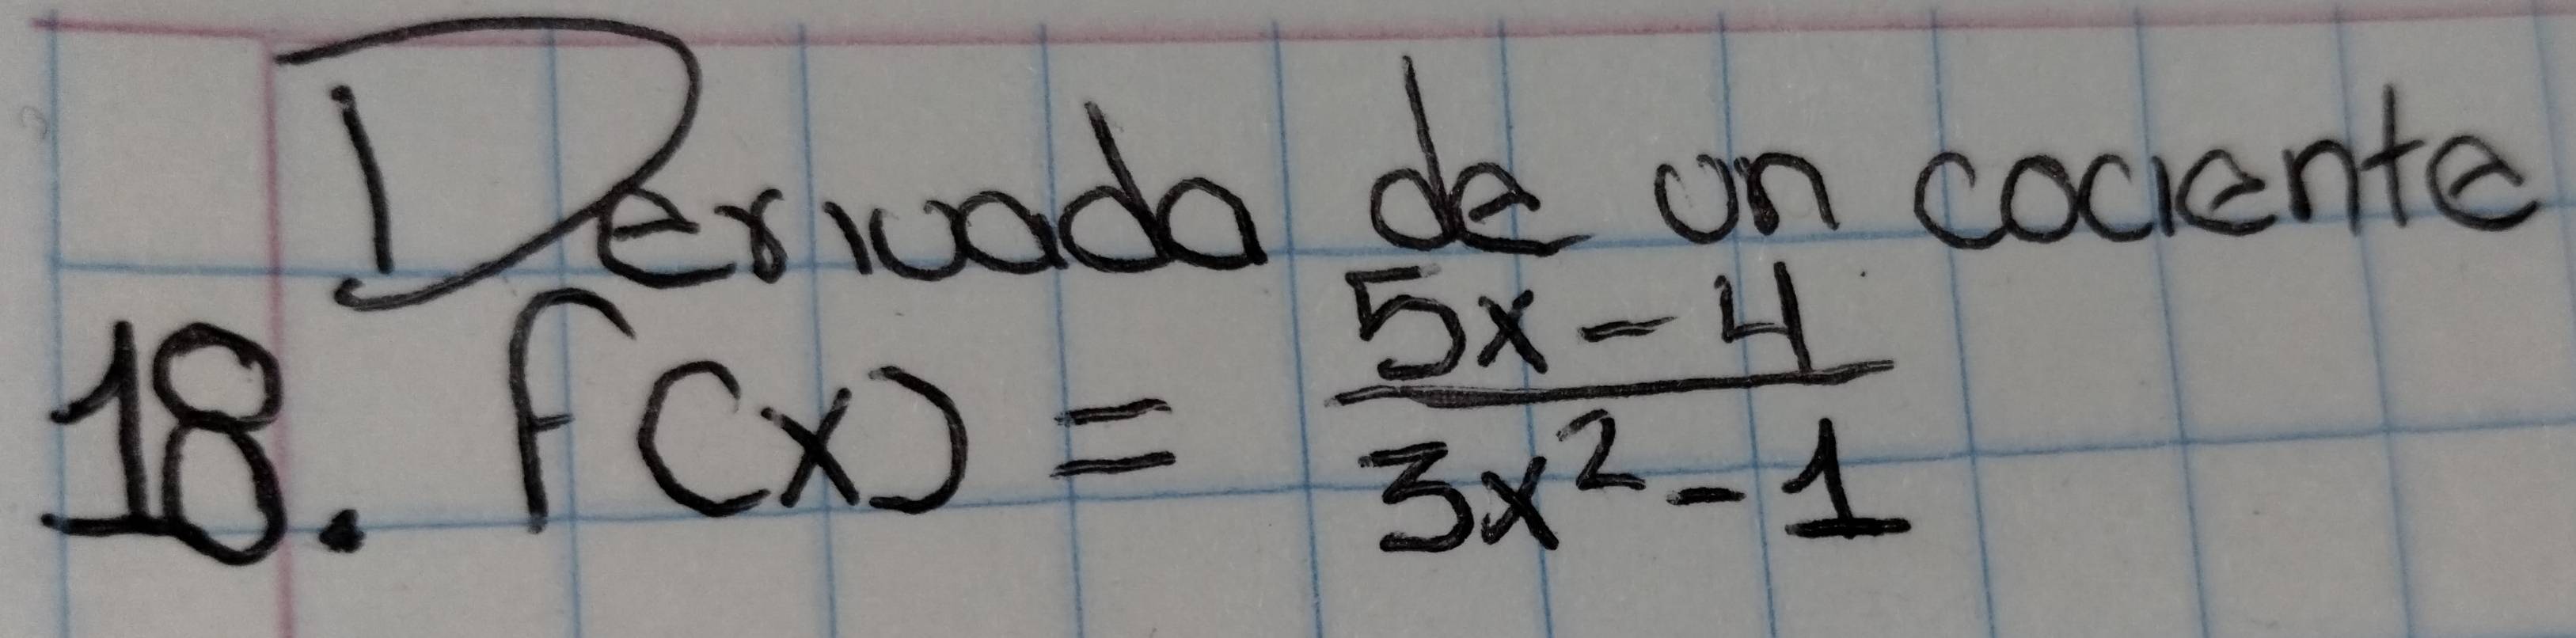 Derivada de un cociente
18. f(x) = \frac{5x - 4}{3x^2 - 1}